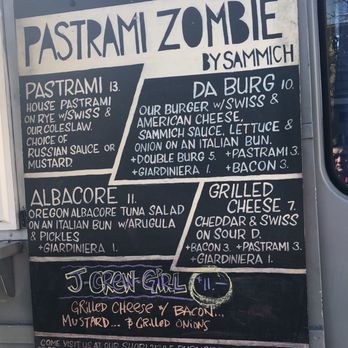 PASTRAMI ZOMBIE
BY SAMMICH
PASTRAMI 13.
HOUSE PASTRAMI
ON RYE W/SWISS &
OUR COLESLAW.
CHOICE OF
RUSSIAN SAUCE OR
MUSTARD.
DA BURG 10.
OUR BURGER W/SWISS &
AMERICAN CHEESE,
SAMMICH SAUCE, LETTUCE &
ONION ON AN ITALIAN BUN.
+DOUBLE BURG 5. +PASTRAMI 3.
+GIARDINIERA 1. +BACON 3.
ALBACORE 11.
OREGON ALBACORE TUNA SALAD
ON AN ITALIAN BUN W/ARUGULA
& PICKLES
+GIARDINIERA 1.
GRILLED
CHEESE 7.
CHEDDAR & SWISS
ON SOUR D.
+BACON 3. +PASTRAMI 3.
+GIARDINIERA 1.
J CREW GIRL 11.-
GRILLED CHEESE & BACON...
MUSTARD... & GRILLED ONIONS
COME VISIT US AT OUR